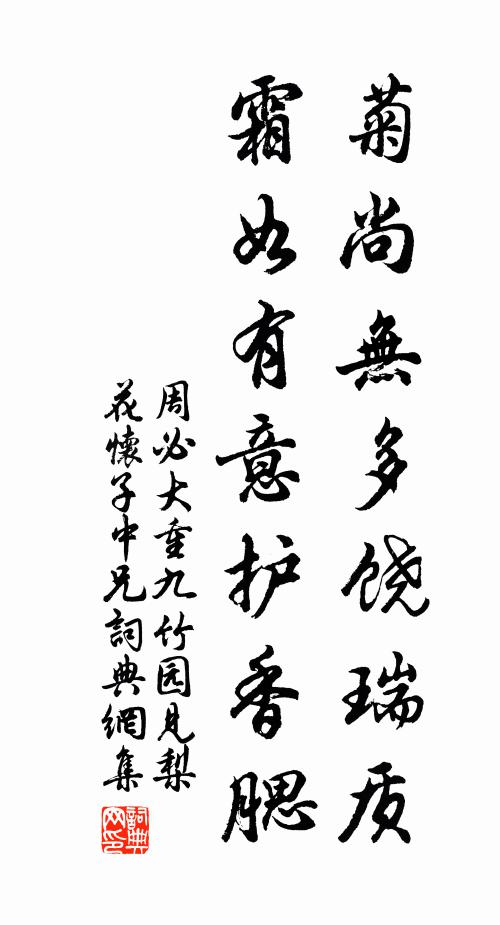 菊尚無多饶瑞质
霜如有意护香腮
周必大重九竹园見梨
花懷子中兄詞典網集
詞典网印